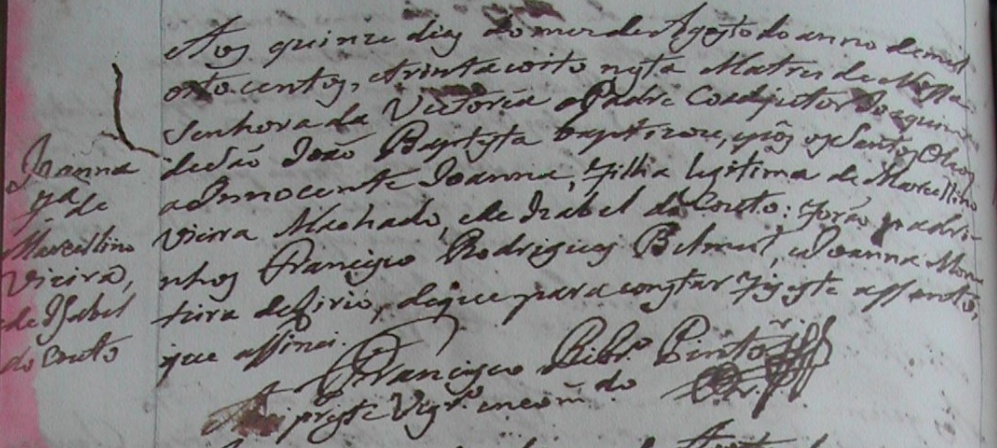 Joanna
fa de
Marcellino
Vieira,
e de Izabel
do Couto
Aos quinze dias do mes de Agosto do anno de mil
oito centos, e trinta e oito nesta Matris de Nossa
Senhora da Victoria o Padre Coadjutor Joaquim
de São João Baptysta baptizou, e pôs os Santos Oleos
a Innocente Joanna, filha legitima de Marcellino
Vieira Machado, e de Izabel do Couto: forão padri-
nhos Francisco Rodrigues, e Joanna
de, de que para constar fis este assento,
que assinei.
Francisco Ribr.o Pinto
Vigr.o encom.do